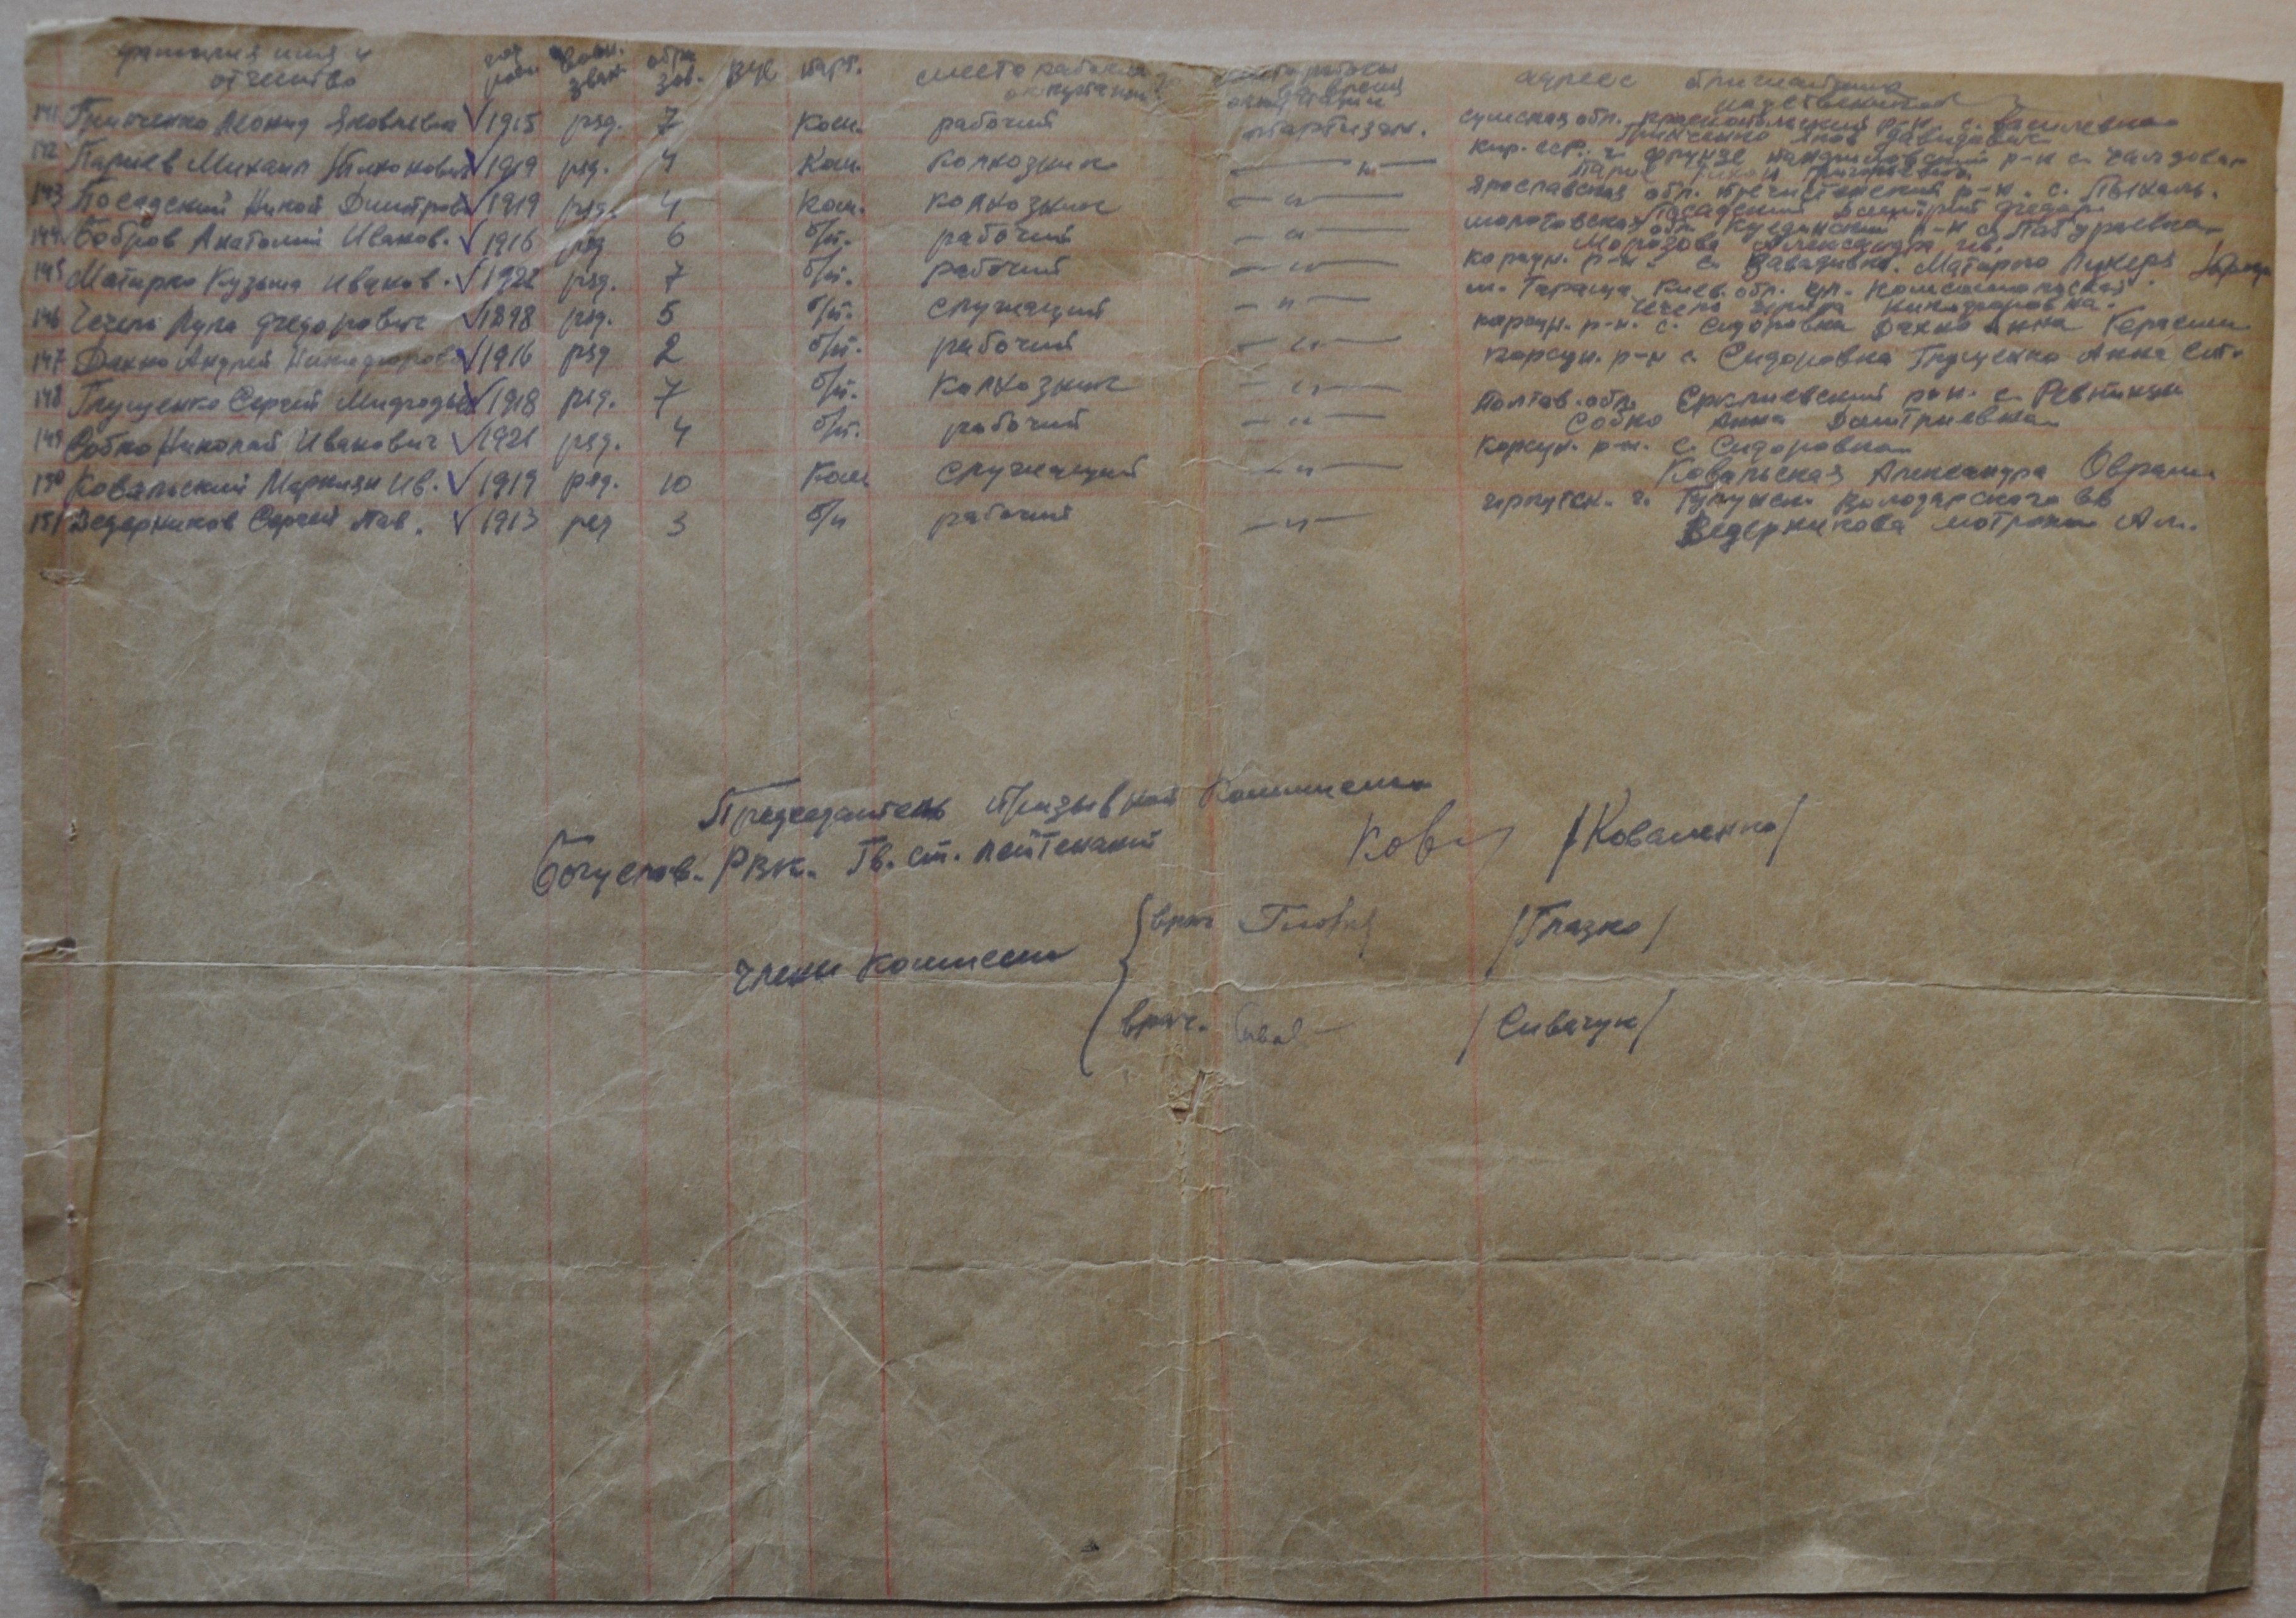 фамилия имя и отчество год рожд. воин. зван. обра зов. ВУС парт. место работы до оккупации место работы во время оккупации адрес ближайших родственников
141 Гринченко Леонид Яковлевич √ 1915 ряд. 7 Ком. рабочий партизан. Сумская обл. Краснопольский р-н. с. Василевка
Гринченко Яков Давидович
142 Париев Михаил Тихонович √ 1919 ряд. 4 Ком. колхозник —"— Кир. ССР. г. Фрунзе р-н с. Чалдовар
143 Посадский Никой Дмитров √ 1919 ряд. 4 Ком. колхозник —"— Ярославская обл. Пречистенский р-н. с.
Посадский Дмитрий Федор.
144. Бобров Анатолий Иванов. √ 1916 ряд 6 б/п. рабочий —"— Молотовская обл. Куединский р-н с.
Морозова Александра Ив.
145 Матирко Кузьма Иванов. √ 1922 ряд. 7 б/п. рабочий —"— Корсун. р-н. с. Завадивка. Матирко Лукерья
146 Чечель Лука Федорович √ 1898 ряд. 5 б/п. служащий —"— м. Тараща Киев. обл. ул. Комсомольская.
Чечель Никифоровна.
147 Дахно Андрей Никифоров √ 1916 ряд 2 б/п. рабочий —"— Корсун. р-н. с. Сидоровка Дахно Анна Герасим
148 Глущенко Сергей Мифодьев √ 1918 ряд. 7 б/п. колхозник —"— Корсун. р-н с. Сидоровка Глущенко Анна Ст.
149 Собко Николай Иванович √ 1921 ряд. 4 б/п. рабочий —"— Полтав. обл. Ерклиевский р-н. с. Ревтинци
Собко Анна Дмитриевна
150 Ковальский Маркиян Ив. √ 1919 ряд. 10 Ком служащий —"— Корсун. р-н. с. Сидоровка
Ковальская Александра Оврам.
151 Ведерников Сергей Пав. √ 1913 ряд 3 б/п рабочий —"— Иркутск. г. Володарского
Ведерникова Мотрона Ал.
Председатель Призывной Комиссии
Богуслав. РВК. Гв. ст. лейтенант Ков /Коваленко/
врач /Глазко/
Члены Комиссии
врач. /Сивачук/